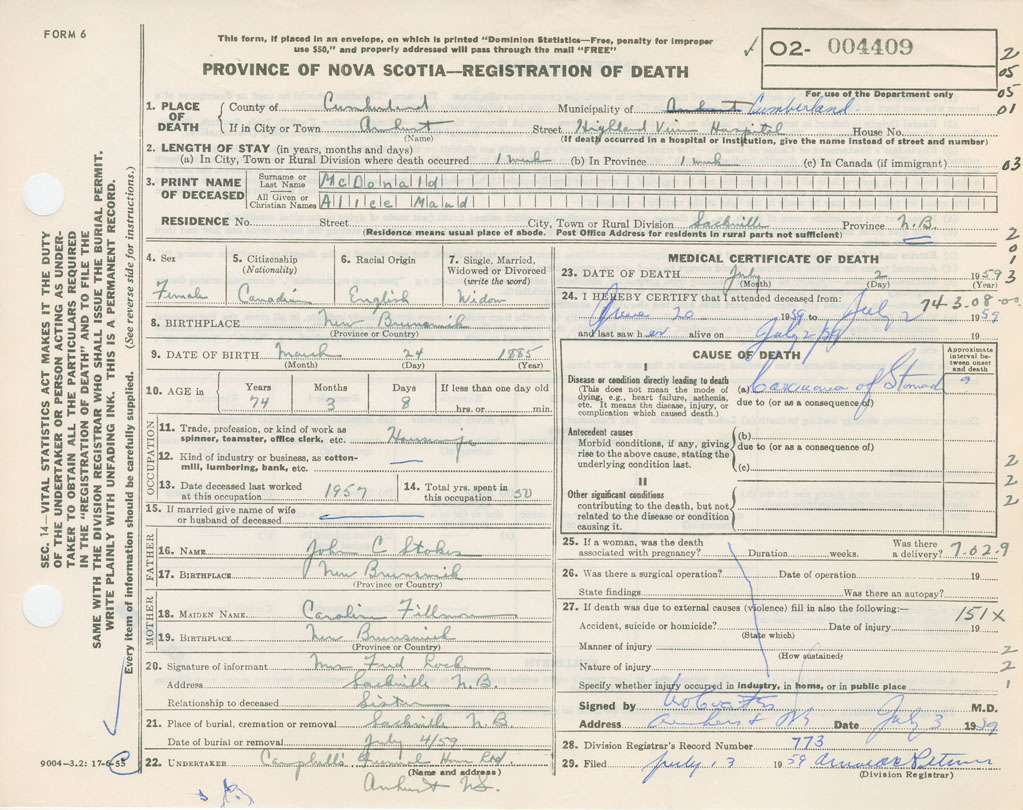 FORM 6
This form, if placed in an envelope, on which is printed "Dominion Statistics—Free, penalty for improper
use $50," and properly addressed will pass through the mail "FREE"
PROVINCE OF NOVA SCOTIA—REGISTRATION OF DEATH
✓ O2- 004409
For use of the Department only
2
05
05
01
03
2
0
1
3
1. PLACE OF DEATH
County of Cumberland Municipality of Amherst Cumberland
If in City or Town Amherst Street Highland View Hospital House No.
(Name) (If death occurred in a hospital or institution, give the name instead of street and number)
2. LENGTH OF STAY (in years, months and days)
(a) In City, Town or Rural Division where death occurred 1 week (b) In Province 1 week (c) In Canada (if immigrant)
3. PRINT NAME OF DECEASED
Surname or Last Name McDonald
All Given or Christian Names Alice Maud
RESIDENCE No. Street City, Town or Rural Division Sackville Province N.B.
(Residence means usual place of abode. Post Office Address for residents in rural parts not sufficient)
4. Sex
Female
5. Citizenship
(Nationality)
Canadian
6. Racial Origin
English
7. Single, Married,
Widowed or Divorced
(write the word)
Widow
8. BIRTHPLACE New Brunswick
(Province or Country)
9. DATE OF BIRTH March 24 1885
(Month) (Day) (Year)
10. AGE in
Years Months Days If less than one day old
74 3 8 hrs. or min.
OCCUPATION
11. Trade, profession, or kind of work as
spinner, teamster, office clerk, etc. Housewife
12. Kind of industry or business, as cotton-
mill, lumbering, bank, etc. —
13. Date deceased last worked
at this occupation 1957
14. Total yrs. spent in
this occupation 50
15. If married give name of wife
or husband of deceased
FATHER
16. NAME John C Stokes
17. BIRTHPLACE New Brunswick
(Province or Country)
MOTHER
18. MAIDEN NAME Caroline Fillmore
19. BIRTHPLACE New Brunswick
(Province or Country)
20. Signature of informant Mrs Fred
Address Sackville N.B.
Relationship to deceased Sister
21. Place of burial, cremation or removal Sackville N.B
Date of burial or removal July 4/59
22. UNDERTAKER Campbell's Funeral Home
(Name and address)
Amherst N.S.
9004-3.2: 17-6-55
MEDICAL CERTIFICATE OF DEATH
23. DATE OF DEATH July 2 1959
(Month) (Day) (Year)
24. I HEREBY CERTIFY that I attended deceased from:
74-3-08-00
June 20 1959 to July 2 1959
and last saw her alive on July 2/59
CAUSE OF DEATH
Approximate
interval be-
tween onset
and death
I
Disease or condition directly leading to death
(This does not mean the mode of
dying, e.g., heart failure, asthenia,
etc. It means the disease, injury, or
complication which caused death.)
(a) Carcinoma of Stomach
due to (or as a consequence of)
?
Antecedent causes
Morbid conditions, if any, giving
rise to the above cause, stating the
underlying condition last.
(b)
due to (or as a consequence of)
(c)
II
Other significant conditions
contributing to the death, but not
related to the disease or condition
causing it.
2
2
2
25. If a woman, was the death
associated with pregnancy? Duration weeks. Was there
a delivery? 7.02.9
26. Was there a surgical operation? Date of operation 19
State findings Was there an autopsy?
27. If death was due to external causes (violence) fill in also the following:—
151X
Accident, suicide or homicide? Date of injury 19
(State which)
Manner of injury 2
(How sustained)
Nature of injury 2
Specify whether injury occurred in industry, in home, or in public place 1
Signed by M.D.
Address Amherst NS Date July 3 1959
28. Division Registrar's Record Number 773
29. Filed July 3 1959
(Division Registrar)
SEC. 14—VITAL STATISTICS ACT MAKES IT THE DUTY
OF THE UNDERTAKER OR PERSON ACTING AS UNDER-
TAKER TO OBTAIN ALL THE PARTICULARS REQUIRED
IN THE "REGISTRATION OF DEATH" AND TO FILE THE
SAME WITH THE DIVISION REGISTRAR WHO SHALL ISSUE THE BURIAL PERMIT.
WRITE PLAINLY WITH UNFADING INK. THIS IS A PERMANENT RECORD.
Every item of information should be carefully supplied. (See reverse side for instructions.)